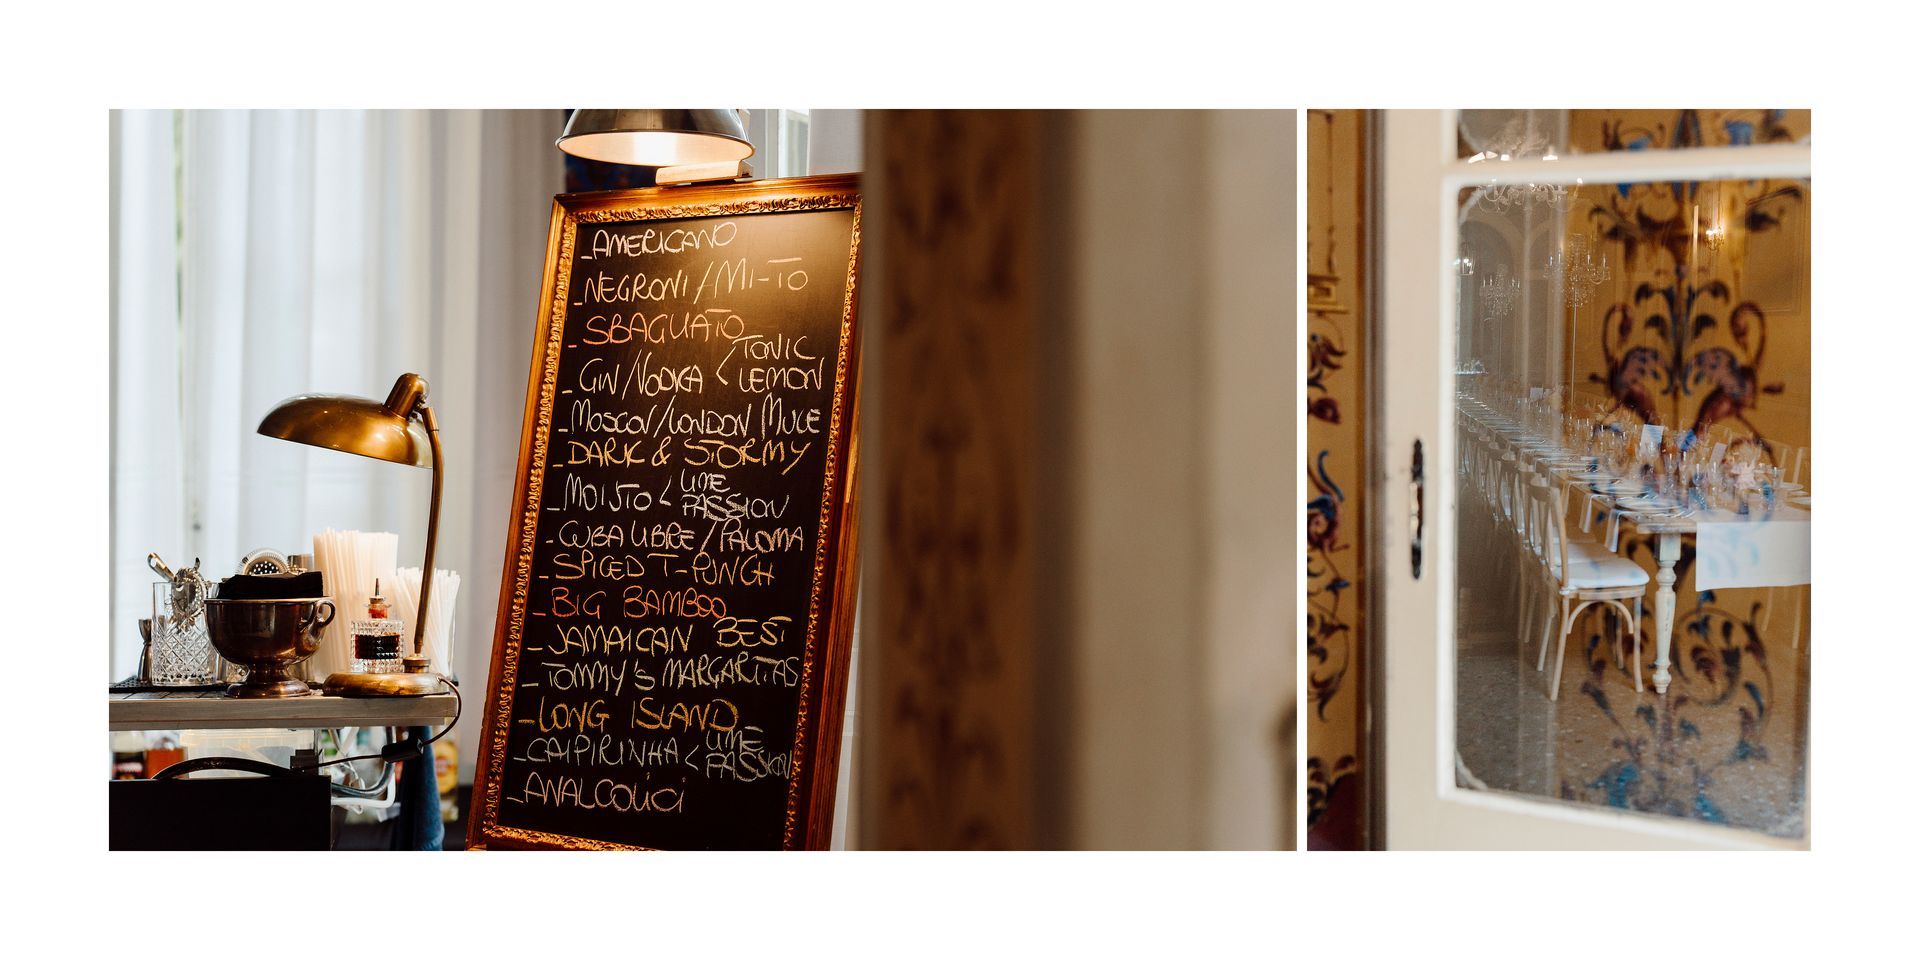 _AMERICANO
_NEGRONI/MI-TO
_SBAGLIATO
_GIN/VODKA < TONIC
LEMON
_MOSCOW/LONDON MULE
_DARK & STORMY
_MOIJTO < LIME
PASSION
-CUBA LIBRE/PALOMA
-SPICED T-PUNCH
_BIG BAMBOO
_JAMAICAN BEST
_TOMMY'S MARGARITAS
_LONG ISLAND
_CAIPIRINHA < LIME
PASSION
_ANALCOLICI